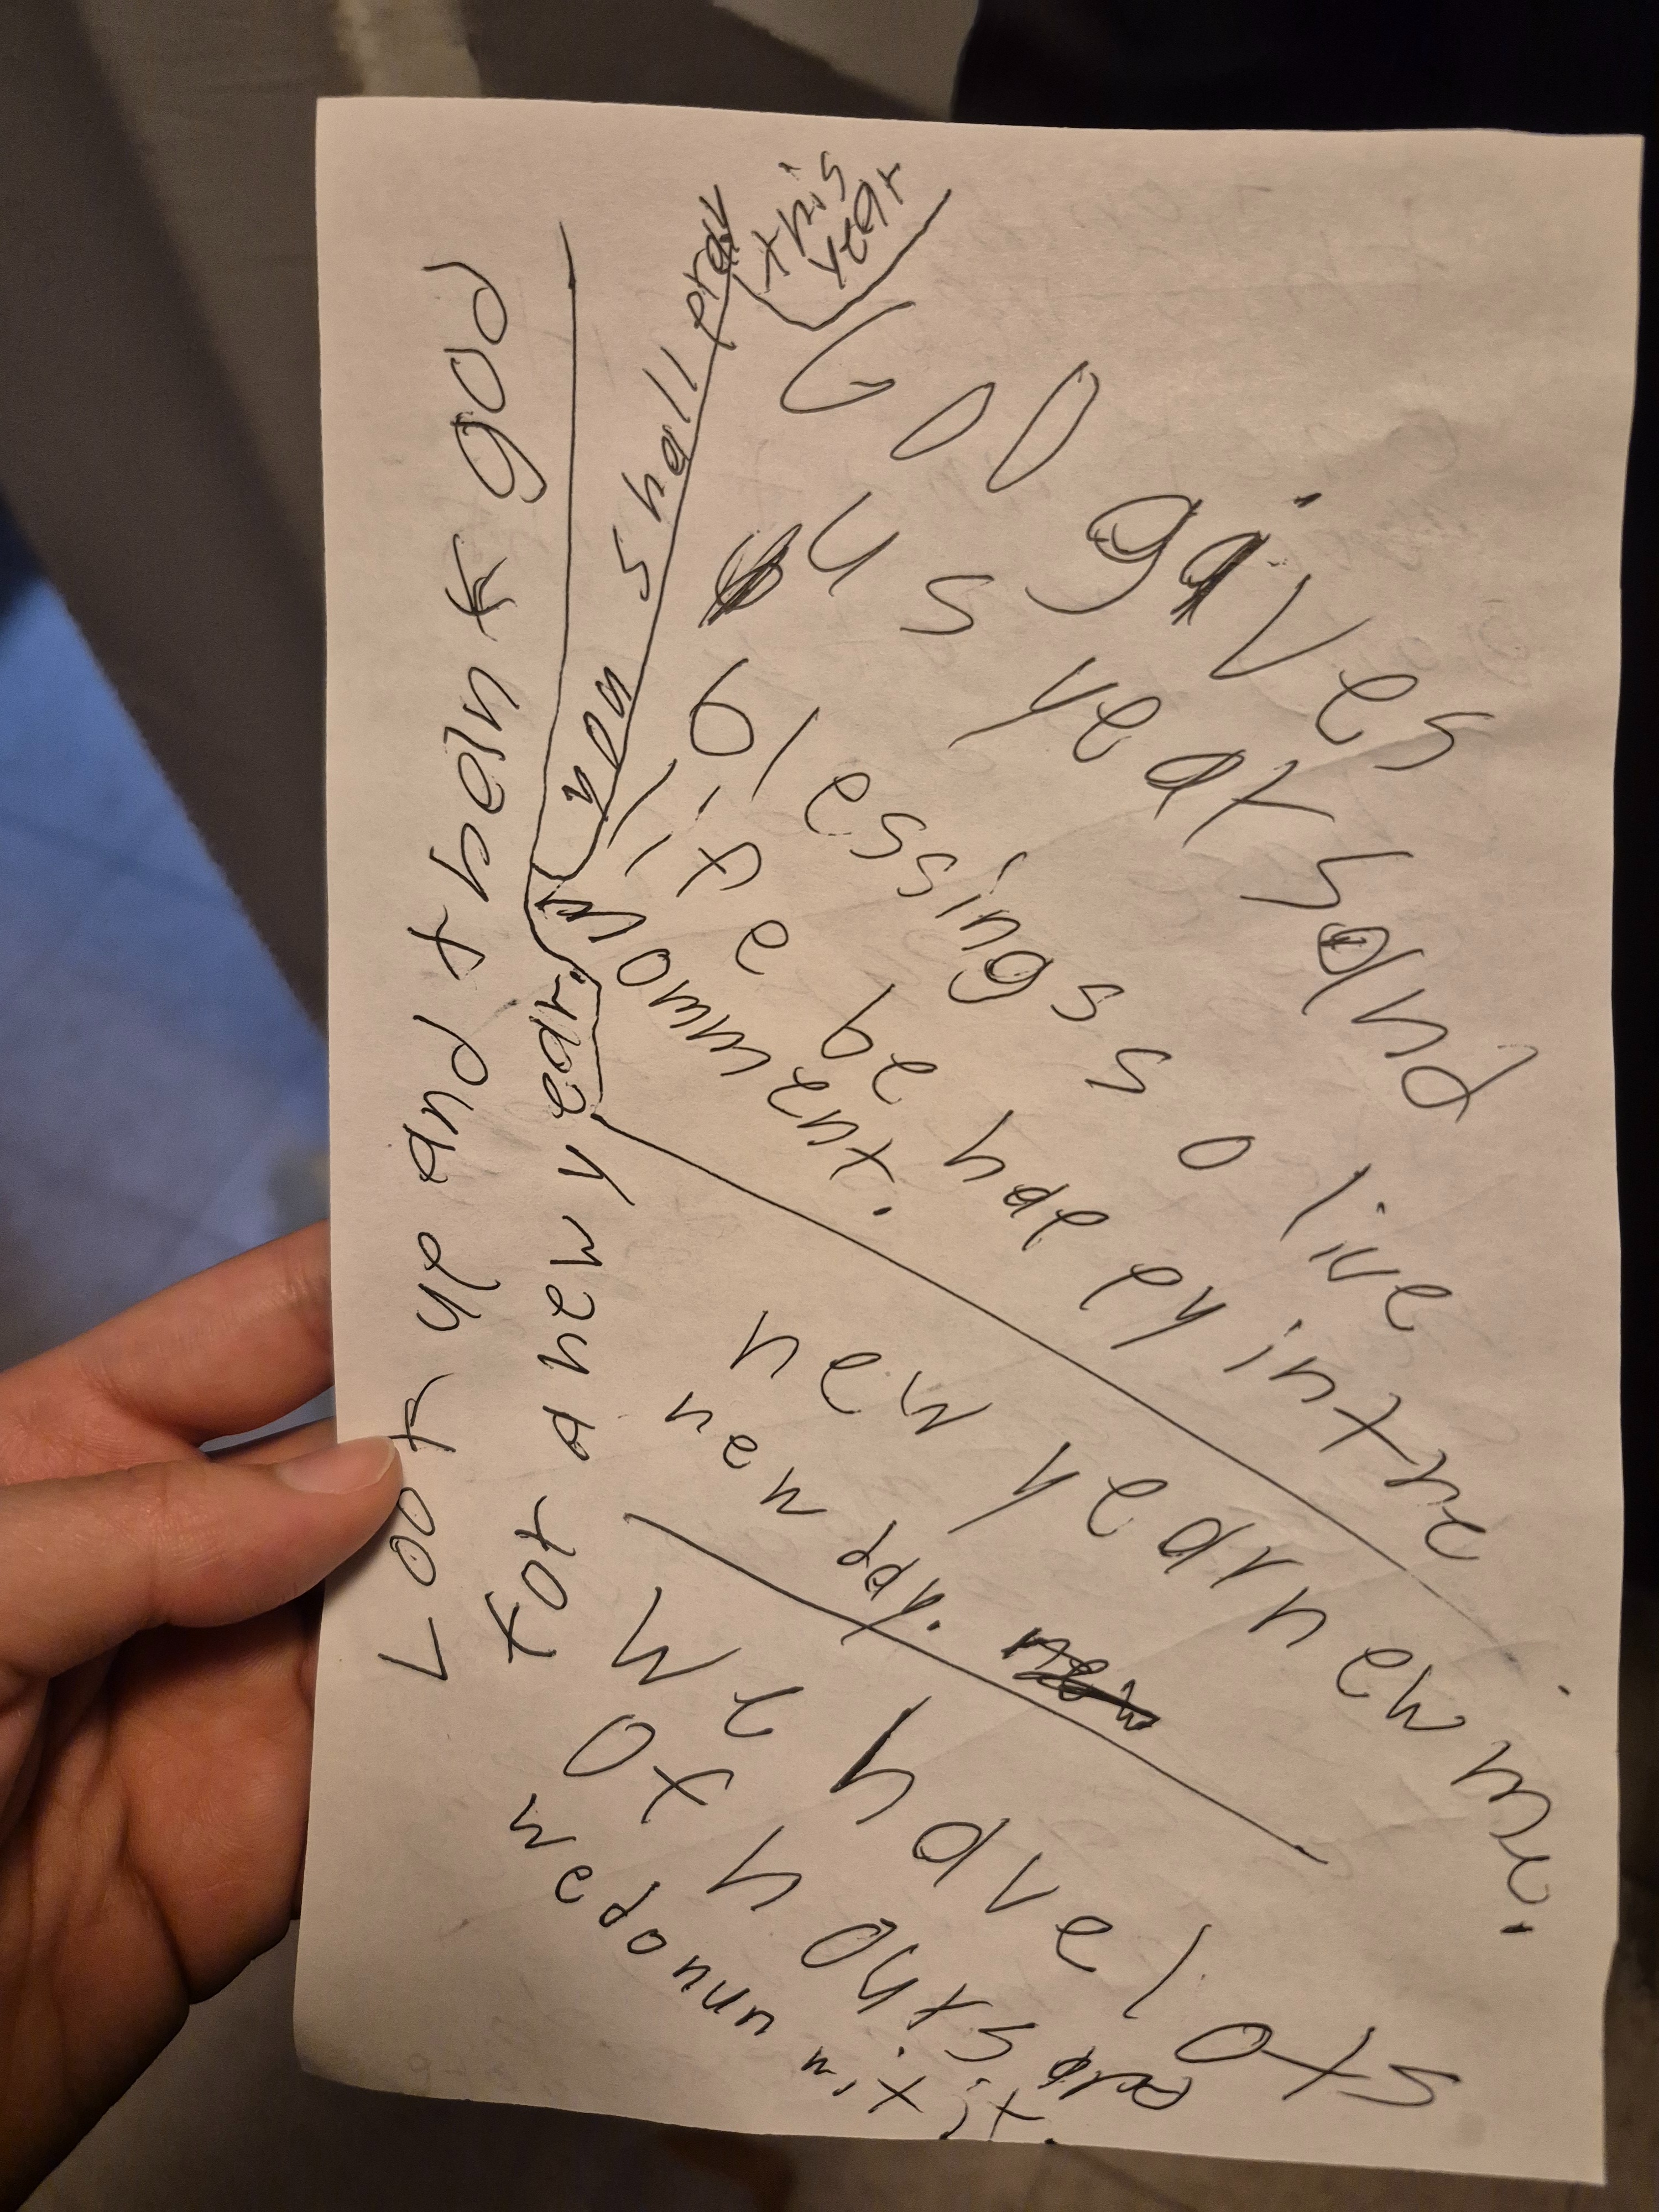 Look up and thank god
for a new year.
you shall pray
this
year
GOD gives
us years and
blessings so live
life be happy in the
momment.
new year new me.
new day.
We have lots
of hours and
we do nun wit it.